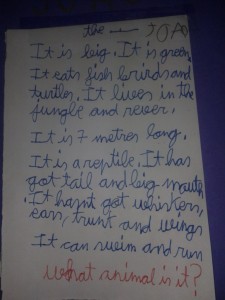 the
It is big. It is green.
It eats fish birids and
turtles. It lives in the
jungle and rever.
It is 7 metres long.
It is a reptile. It has
got tail and big mouth
. It hasnt got whiskers,
ears, trunk and wings
It can swim and run
what animal is it?